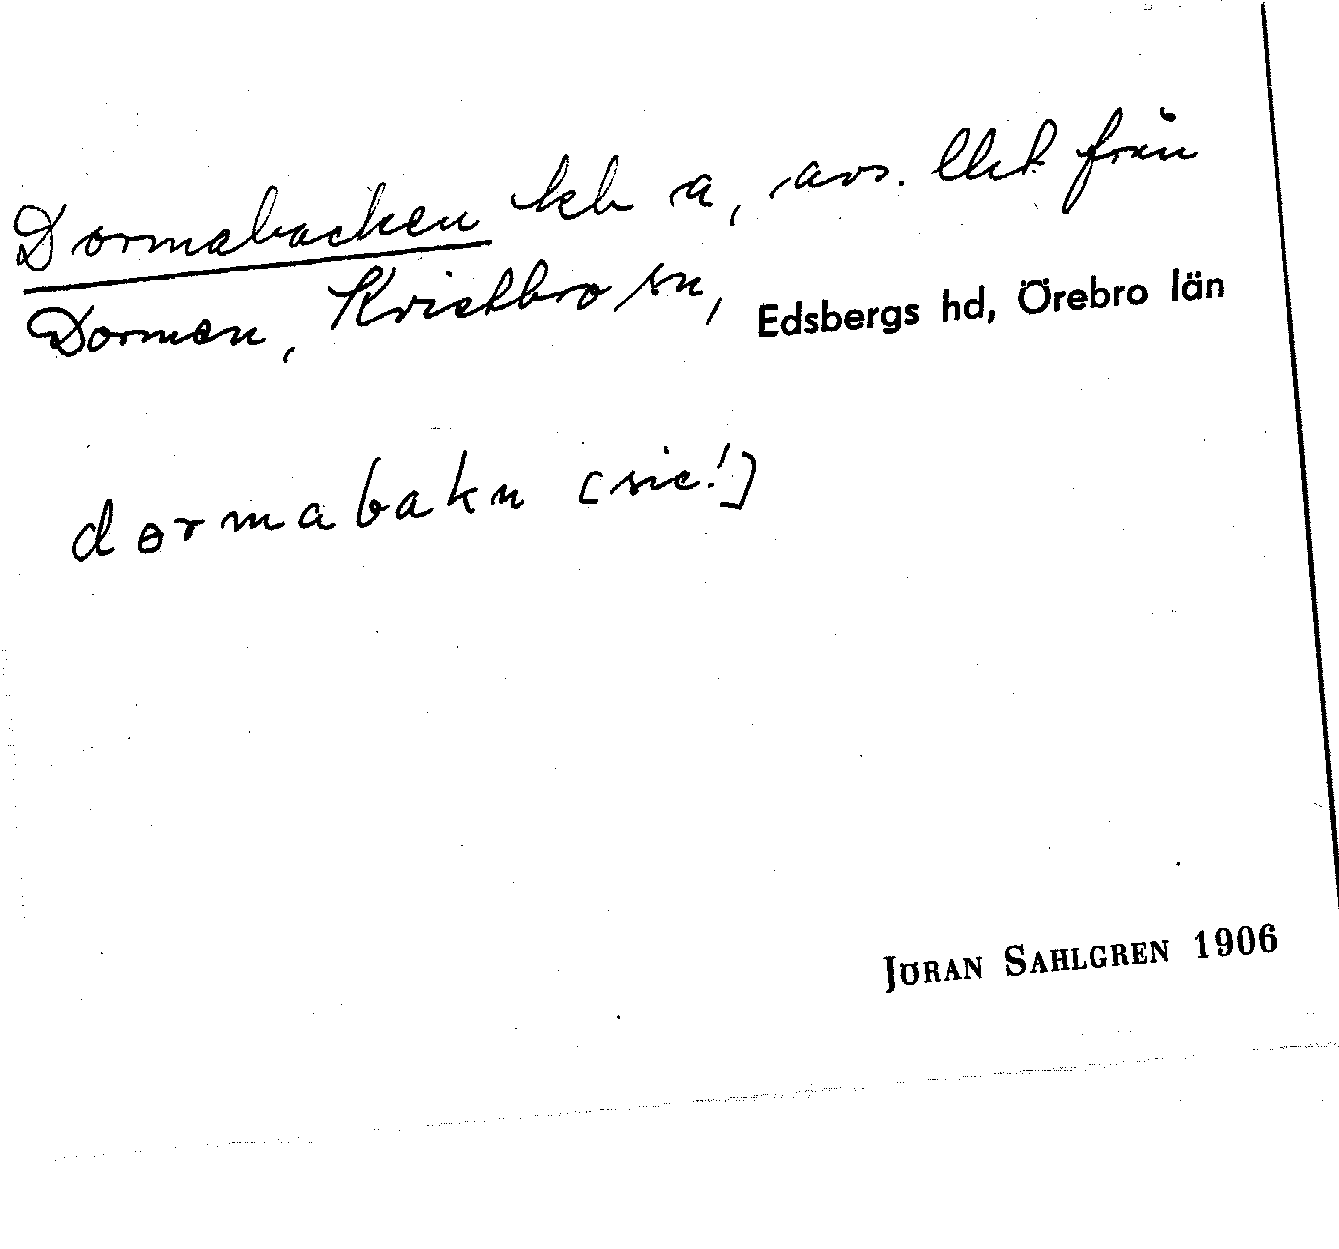 Dormabacken tkb a, avs. llet från
Dormen, Kvistbro sn, Edsbergs hd, Örebro län
dormabakn [sic!]
JÖRAN SAHLGREN 1906